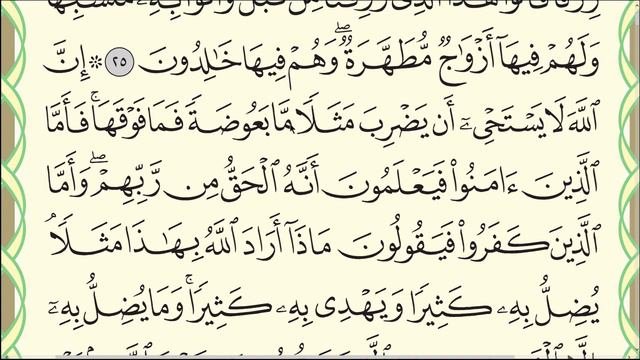 وَلَهُمۡ فِيهَآ أَزۡوَٰجٞ مُّطَهَّرَةٞۖ وَهُمۡ فِيهَا خَٰلِدُونَ ٢٥ ۞ إِنَّ
ٱللَّهَ لَا يَسۡتَحۡيِۦٓ أَن يَضۡرِبَ مَثَلٗا مَّا بَعُوضَةٗ فَمَا فَوۡقَهَاۚ فَأَمَّا
ٱلَّذِينَ ءَامَنُواْ فَيَعۡلَمُونَ أَنَّهُ ٱلۡحَقُّ مِن رَّبِّهِمۡۖ وَأَمَّا
ٱلَّذِينَ كَفَرُواْ فَيَقُولُونَ مَاذَآ أَرَادَ ٱللَّهُ بِهَٰذَا مَثَلٗاۘ
يُضِلُّ بِهِۦ كَثِيرٗا وَيَهۡدِي بِهِۦ كَثِيرٗاۚ وَمَا يُضِلُّ بِهِۦٓ